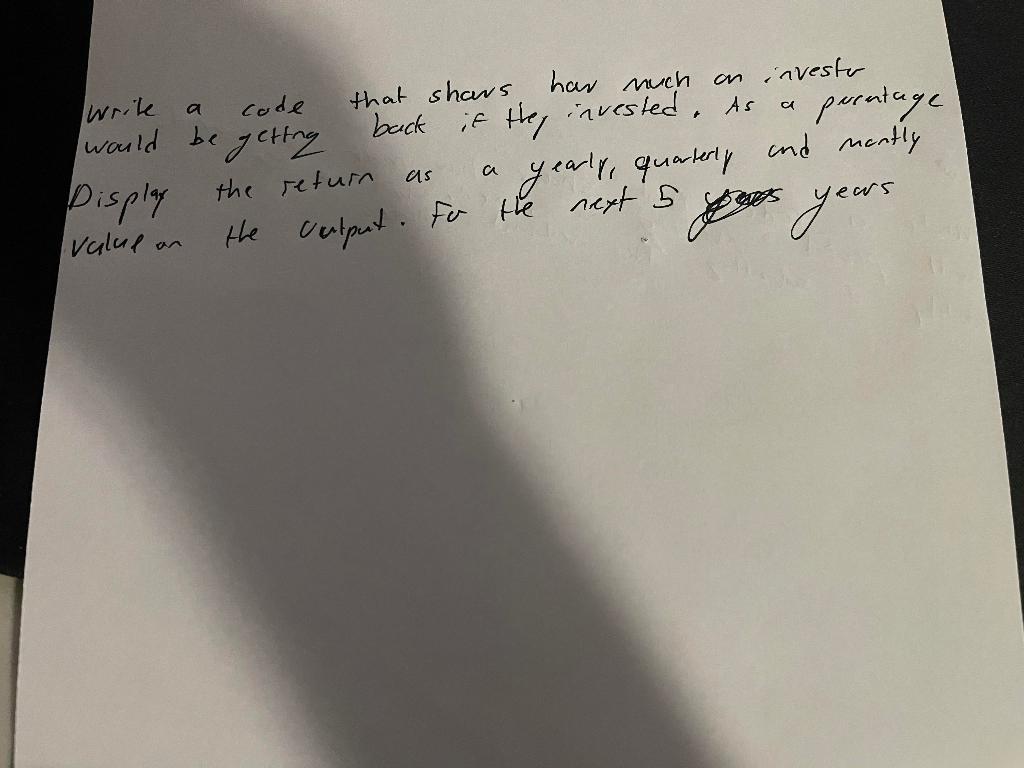 write a code that shows how much an investor
would be getting back if they invested. As a percentage
Display the return as a yearly, quarterly and montly
value on the output. For the next 5 years